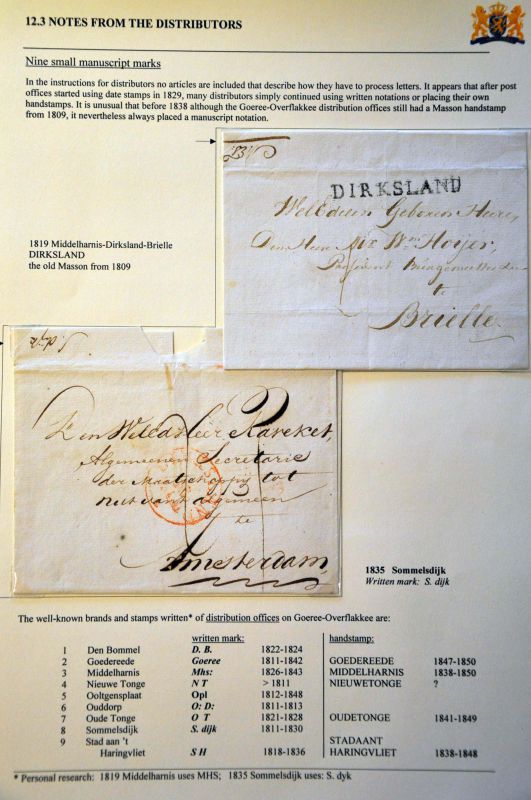 12.3 NOTES FROM THE DISTRIBUTORS
Nine small manuscript marks
In the instructions for distributors no articles are included that describe how they have to process letters. It appears that after post
offices started using date stamps in 1829, many distributors simply continued using written notations or placing their own
handstamps. It is unusual that before 1838 although the Goeree-Overflakkee distribution offices still had a Masson handstamp
from 1809, it nevertheless always placed a manuscript notation.
DIRKSLAND
WelEdelen Geboren Heere
Den Heer Mr Wm Hoijer
President Burgemeester
te
Brielle
1819 Middelharnis-Dirksland-Brielle
DIRKSLAND
the old Masson from 1809
S. dijk
Den WelEd Heer
Algemeenen Secretaris
der Maatschappij tot
nut van't algemeen
te
Amsterdam
1835 Sommelsdijk
Written mark: S. dijk
The well-known brands and stamps written* of distribution offices on Goeree-Overflakkee are:
written mark: handstamp:
1 Den Bommel D. B. 1822-1824
2 Goedereede Goeree 1811-1842 GOEDEREEDE 1847-1850
3 Middelharnis Mhs: 1826-1843 MIDDELHARNIS 1838-1850
4 Nieuwe Tonge N T > 1811 NIEUWETONGE ?
5 Ooltgensplaat Opl 1812-1848
6 Ouddorp O: D: 1811-1813
7 Oude Tonge O T 1821-1828 OUDETONGE 1841-1849
8 Sommelsdijk S. dijk 1811-1830
9 Stad aan 't STADAANT
Haringvliet S H 1818-1836 HARINGVLIET 1838-1848
* Personal research: 1819 Middelharnis uses MHS; 1835 Sommelsdijk uses: S. dyk